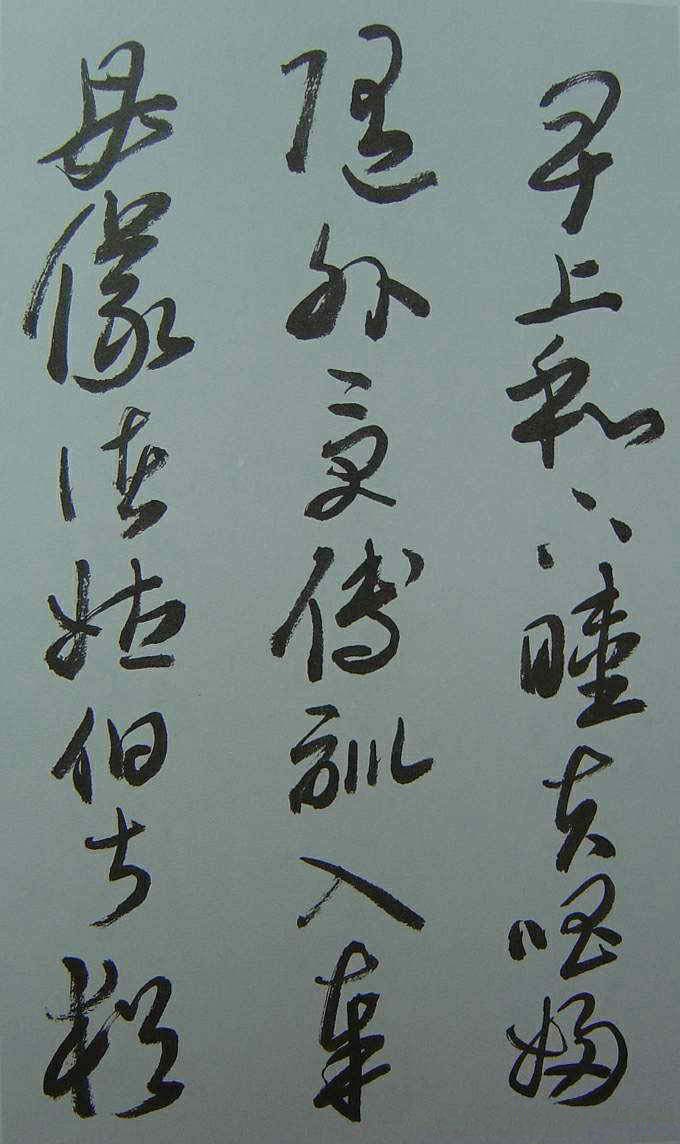 卑上和下睦夫唱婦
隨外受傅訓入奉
母儀諸姑伯叔猶